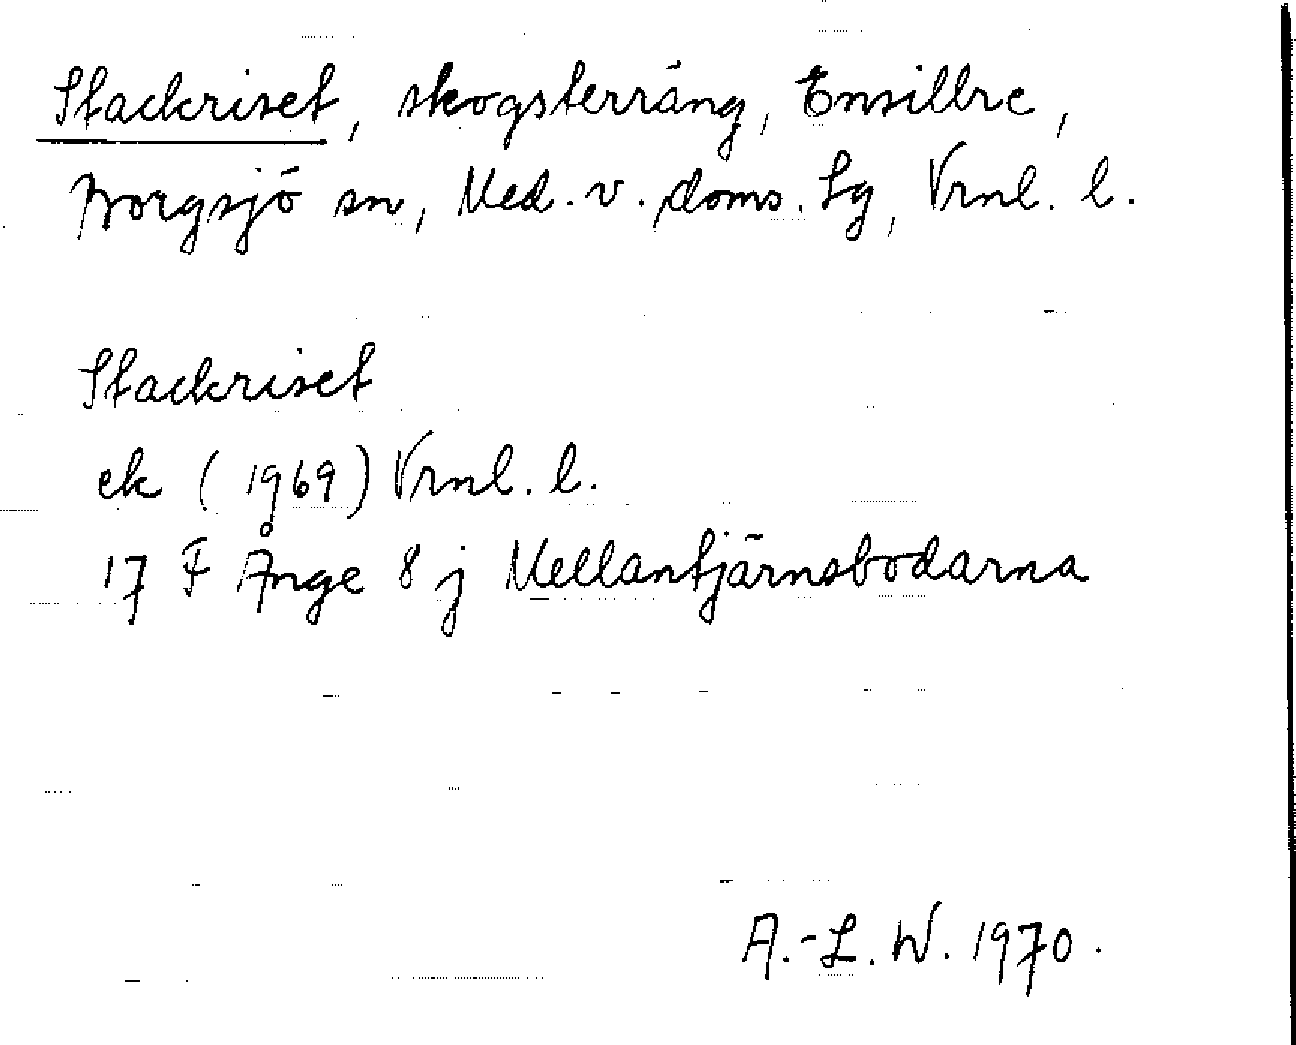 Stackriset, skogsterräng, Ensillre,
Borgsjö sn, Med. v. doms. lg, Vrnl. l.
Stackriset
ek (1969) Vrnl. l.
17 F Ånge 8 j Mellantjärnsbodarna
A.-L. W. 1970.